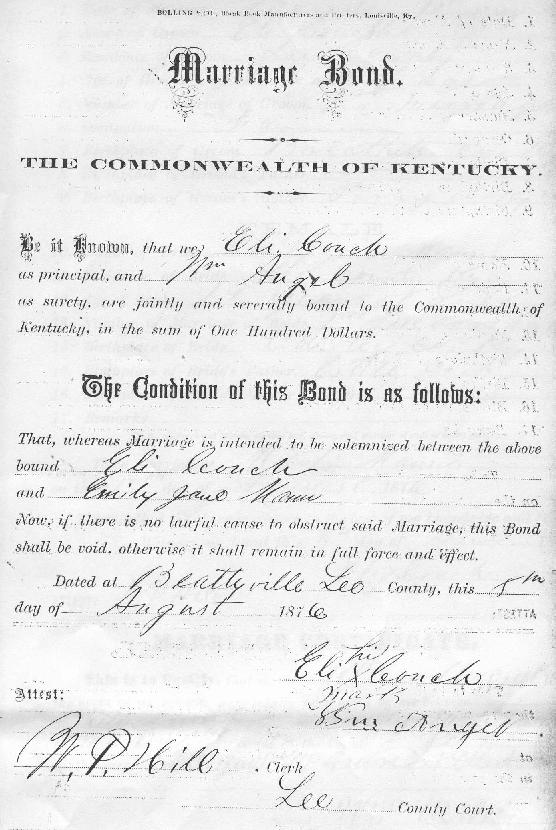 BOLLING & CO., Blank Book Manufacturers and Printers, Louisville, Ky.
Marriage Bond.
THE COMMONWEALTH OF KENTUCKY.
Be it Known, that we, Eli Couch
as principal, and Wm Angel
as surety, are jointly and severally bound to the Commonwealth of
Kentucky, in the sum of One Hundred Dollars.
The Condition of this Bond is as follows:
That, whereas Marriage is intended to be solemnized between the above
bound Eli Couch
and Emily Jane Mann
Now, if there is no lawful cause to obstruct said Marriage, this Bond
shall be void, otherwise it shall remain in full force and effect.
Dated at Beattyville Lee County, this 5th
day of August 1876
his
Eli X Couch
mark
Attest:
Wm Angel
W. P. Hill . Clerk
Lee County Court.